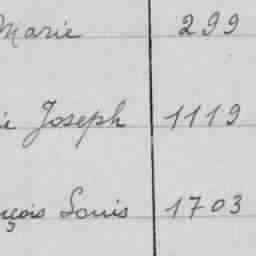 Marie 299
Joseph 1119
çois Louis 1703